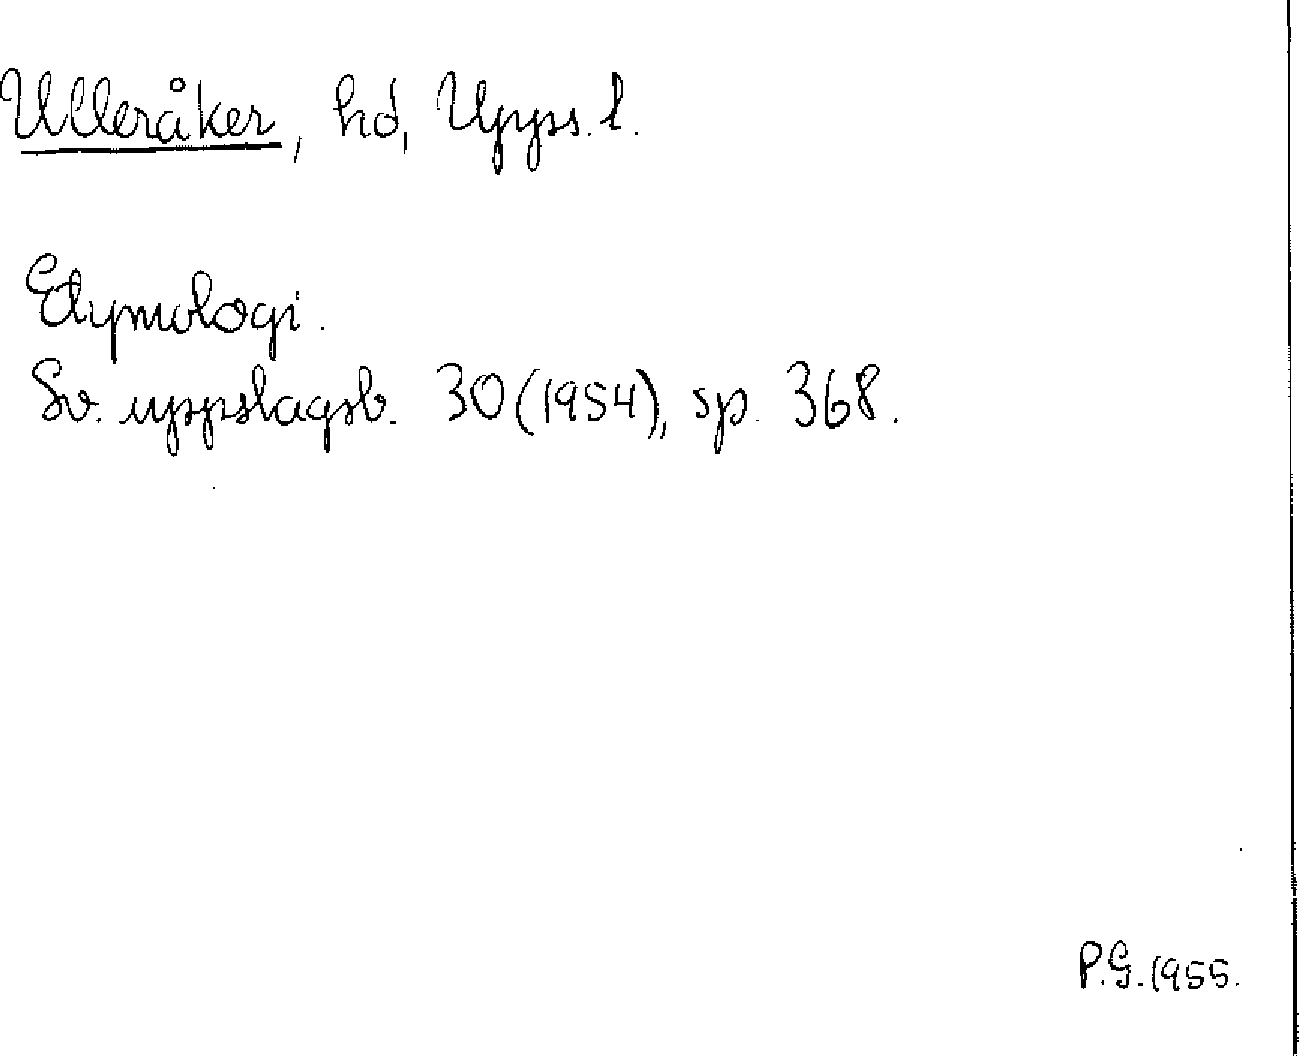 Ulleråker, hd, Upps. l.
Etymologi.
Sv. uppslagsb. 30 (1954), sp. 368.
P.G. 1955.